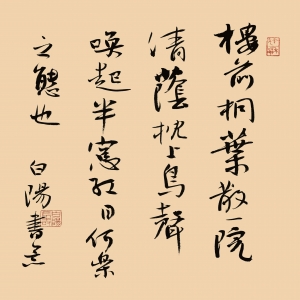 樓前桐葉散一院
清蔭枕上鳥聲
喚起半窓紅日何樂
之聽也
白陽書